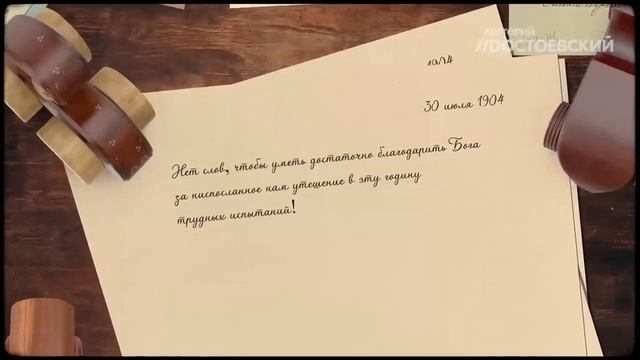 ЛЕКТОРИЙ
//ДОСТОЕВСКИЙ
1904
30 июля 1904
Нет слов, чтобы уметь достаточно благодарить Бога
за ниспосланное нам утешение в эту годину
трудных испытаний!